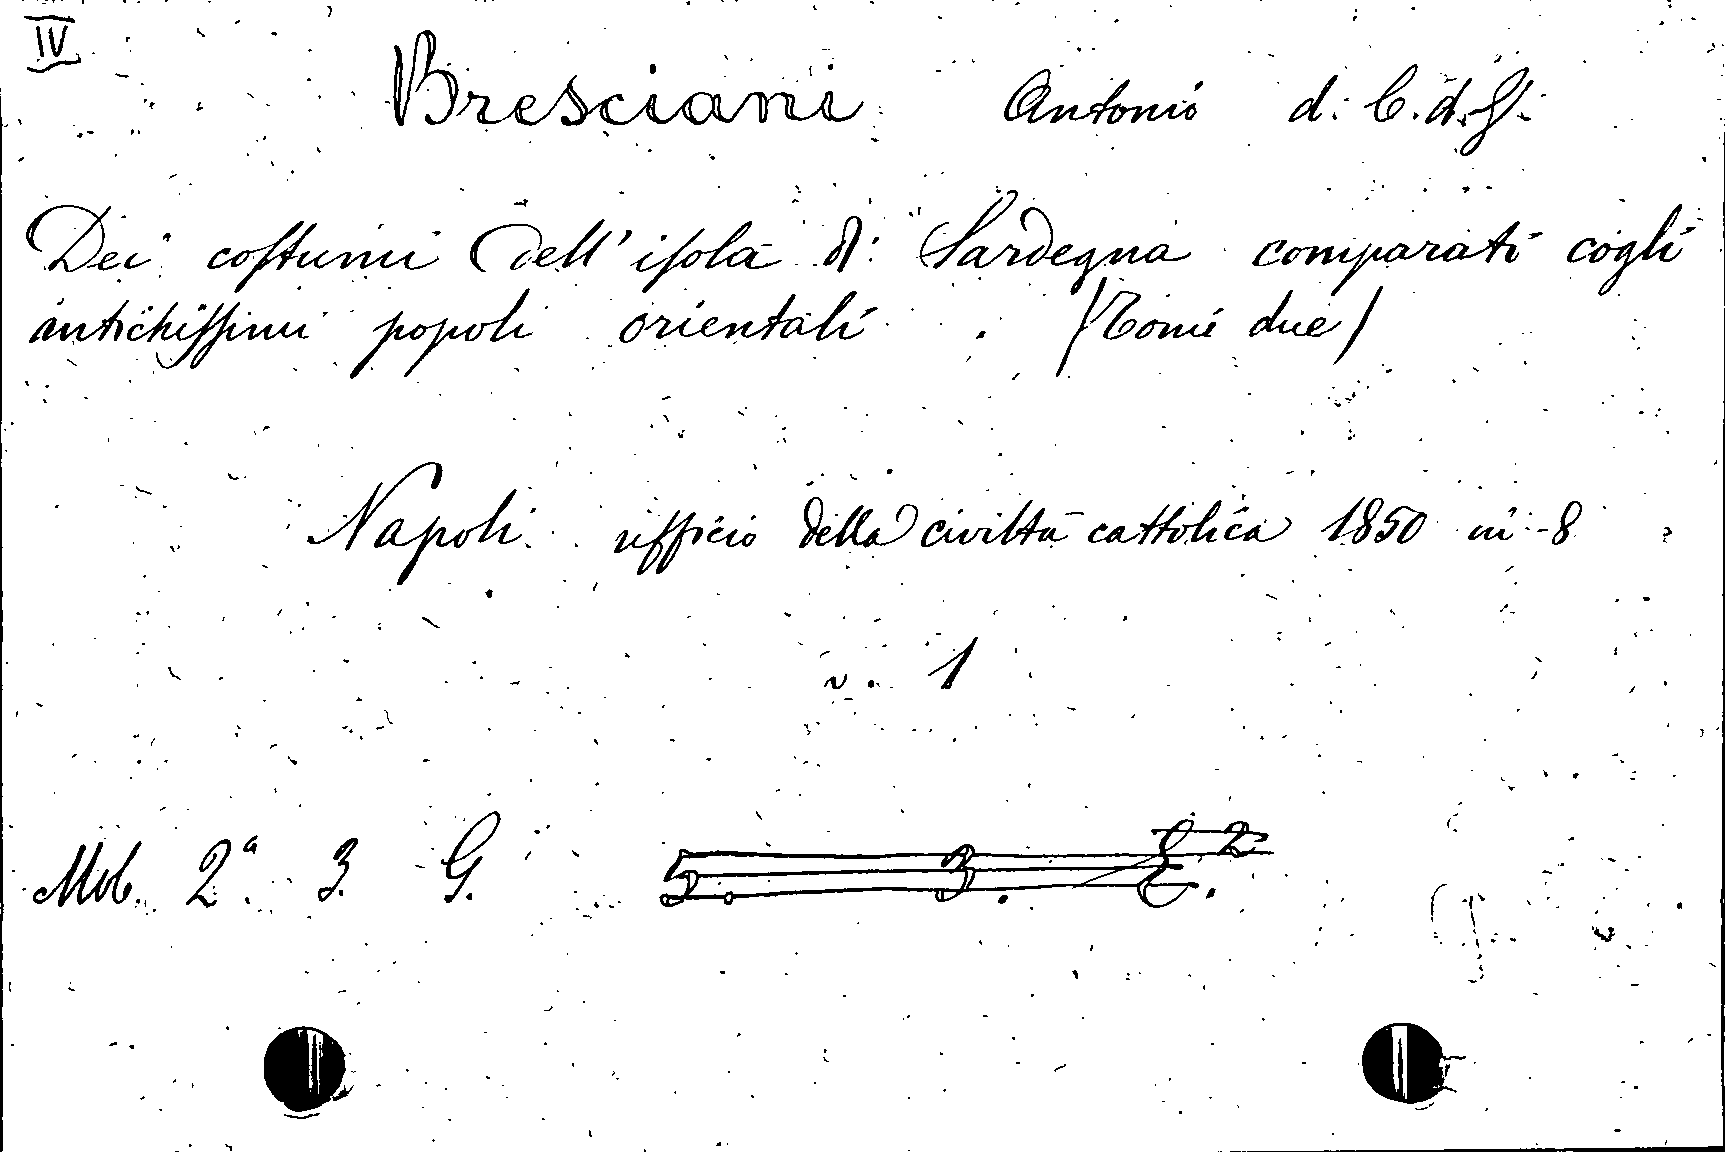 IV
Bresciani Antonio d. C. d. G.
Dei costumi dell'isola di Sardegna comparati cogli
antichissimi popoli orientali. (Tomi due)
Napoli. ufficio della civiltà cattolica 1850 in-8
v. 1
Mob. 2ª. 3. G. 5. 3. E.2